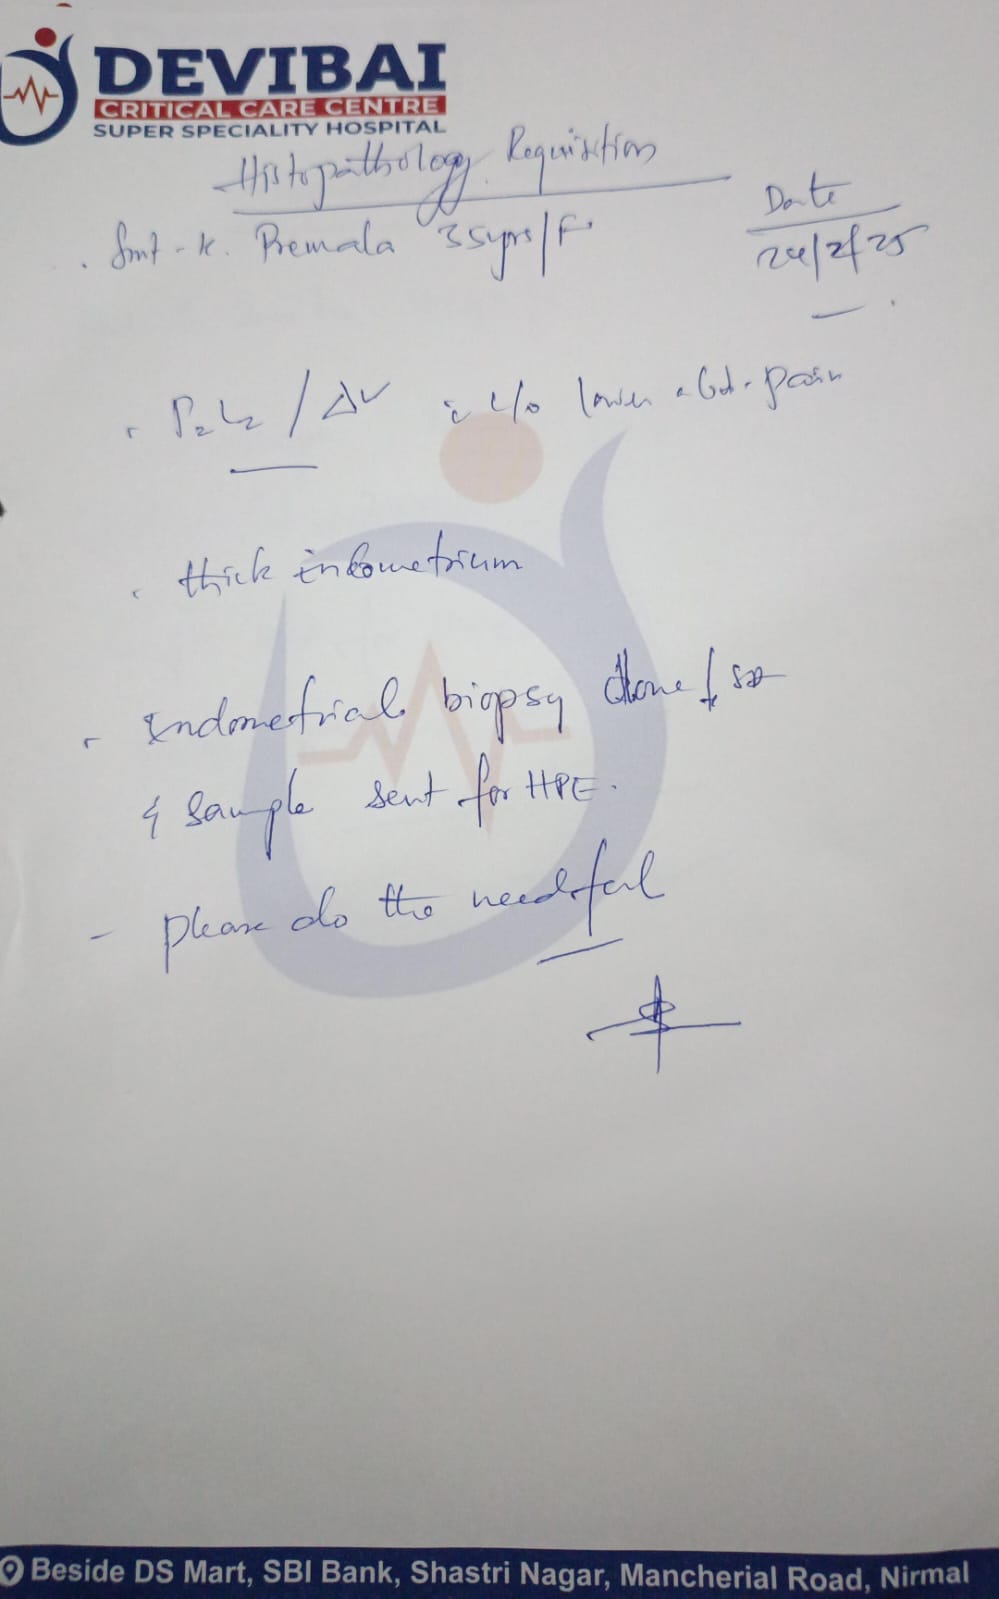 DEVIBAI
CRITICAL CARE CENTRE
SUPER SPECIALITY HOSPITAL
Histopathology Requisition
Date
24/2/25
Smt - K. Premala 35yrs/F
P2L2 / c/o lower abd. pain
thick endometrium
Endometrial biopsy done
& Sample sent for HPE.
- please do the needful
Beside DS Mart, SBI Bank, Shastri Nagar, Mancherial Road, Nirmal